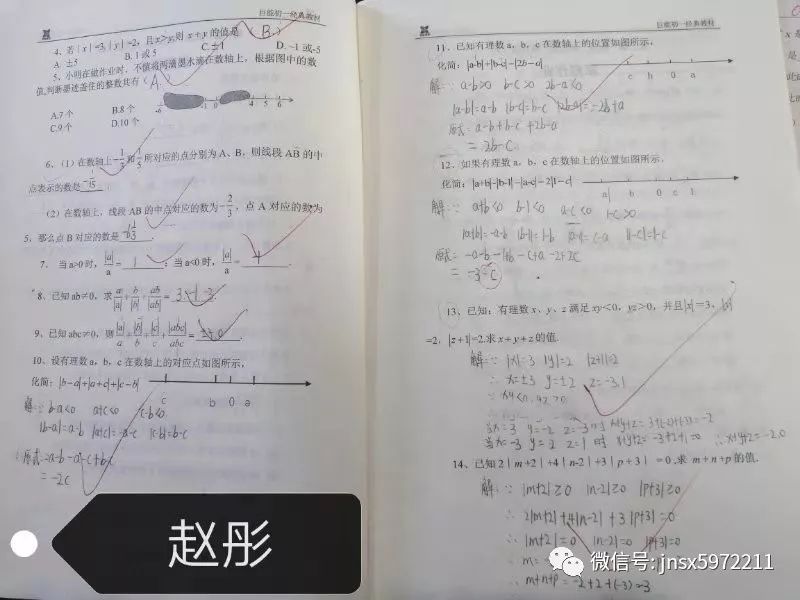 巨能初一经典教材
4、若|x|=3,|y|=2，且x>y,则x+y的值是 B.
A ±5 B. 1 或 5 C. ±1 D. -1 或-5
5、小明在做作业时，不慎将两滴墨水滴在数轴上，根据图中的数
值,判断墨迹盖住的整数共有（A）
A.7 个 B.8 个
C.9 个 D.10 个
-6 -1 0 4 5 6
6、（1）在数轴上-1/3和1/5所对应的点分别为 A、B，则线段 AB 的中
点表示的数是 -1/15 .
（2）在数轴上，线段 AB 的中点对应的数为-2/3，点 A 对应的数为
5，那么点 B 对应的数是
7、当 a>0 时，|a|/a= 1 ；当 a<0 时，|a|/a=
8、已知 ab≠0，求 a/|a|+|b|/b+ab/|ab|= 3、-1
9、已知 abc≠0，则|a|/a+|b|/b+|c|/c+|abc|/abc=
10、设有理数 a，b，c 在数轴上的对应点如图所示，
化简：|b-a|+|a+c|+|c-b|
c b 0 a
解：∵ b-a<0 a+c<0 c-b<0
|b-a|=a-b |a+c|=-a-c |c-b|=b-c
原式=a-b-a-c+b-c
= -2c
赵彤
巨能初一经典教材
11、已知有理数 a，b，c 在数轴上的位置如图所示，
化简：|a-b|+|b-c|-|2b-a|
c b 0 a
解：∵ a-b>0 b-c>0 2b-a<0
|a-b|=a-b |b-c|=b-c |2b-a|=-2b+a
原式= a-b+b-c+2b-a
= 2b-c
12、如果有理数 a，b，c 在数轴上的位置如图所示，
化简：|a+b|-|b-1|-|a-c|-2|1-c|
a b 0 c 1
解：∵ a+b<0 b-1<0 a-c<0 1-c>0
|a+b|=-a-b |b-1|=1-b |a-c|=c-a |1-c|=1-c
原式= -a-b-1+b-c+a-2+2c
= -3-c
13、已知：有理数 x、y、z 满足 xy<0，yz>0，并且|x|=3，|y|
=2，|z+1|=2.求 x+y+z 的值.
解：∵ |x|=3 |y|=2 |z+1|=2
∴ x=±3 y=±2 z=-3,1
∵ xy<0,yz>0
当x=3 y=-2 z=-3时 x+y+z=3+(-2)+(-3)=-2
当x=-3 y=2 z=1 时 x+y+z=-3+2+1=0 ∴x+y+z=-2,0
14、已知 2|m+2|+4|n-2|+3|p+3|=0,求 m+n+p 的值.
解：∵ |m+2|≥0 |n-2|≥0 |p+3|≥0
∴ 2|m+2|+4|n-2|+3|p+3|=0
∴ |m+2|=0 |n-2|=0 |p+3|=0
∴ m=
∴ m+n+p=-2+2+(-3)=-3
微信号: jnsx5972211